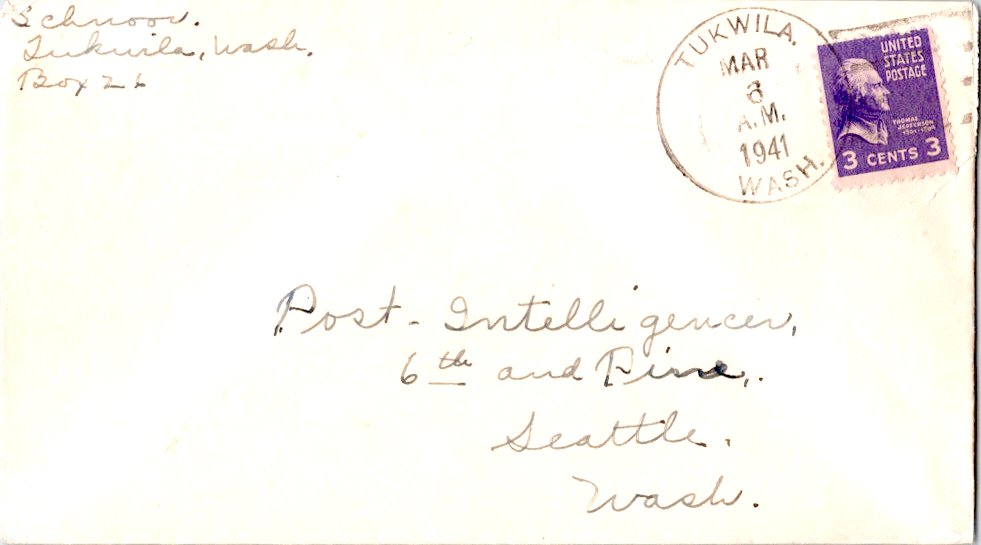 Schnoor.
Tukwila, Wash.
Box 26
TUKWILA.
MAR
6
A.M.
1941
WASH.
UNITED
STATES
POSTAGE
THOMAS
JEFFERSON
3 CENTS 3
Post-Intelligencer,
6th and Pine,.
Seattle.
Wash.